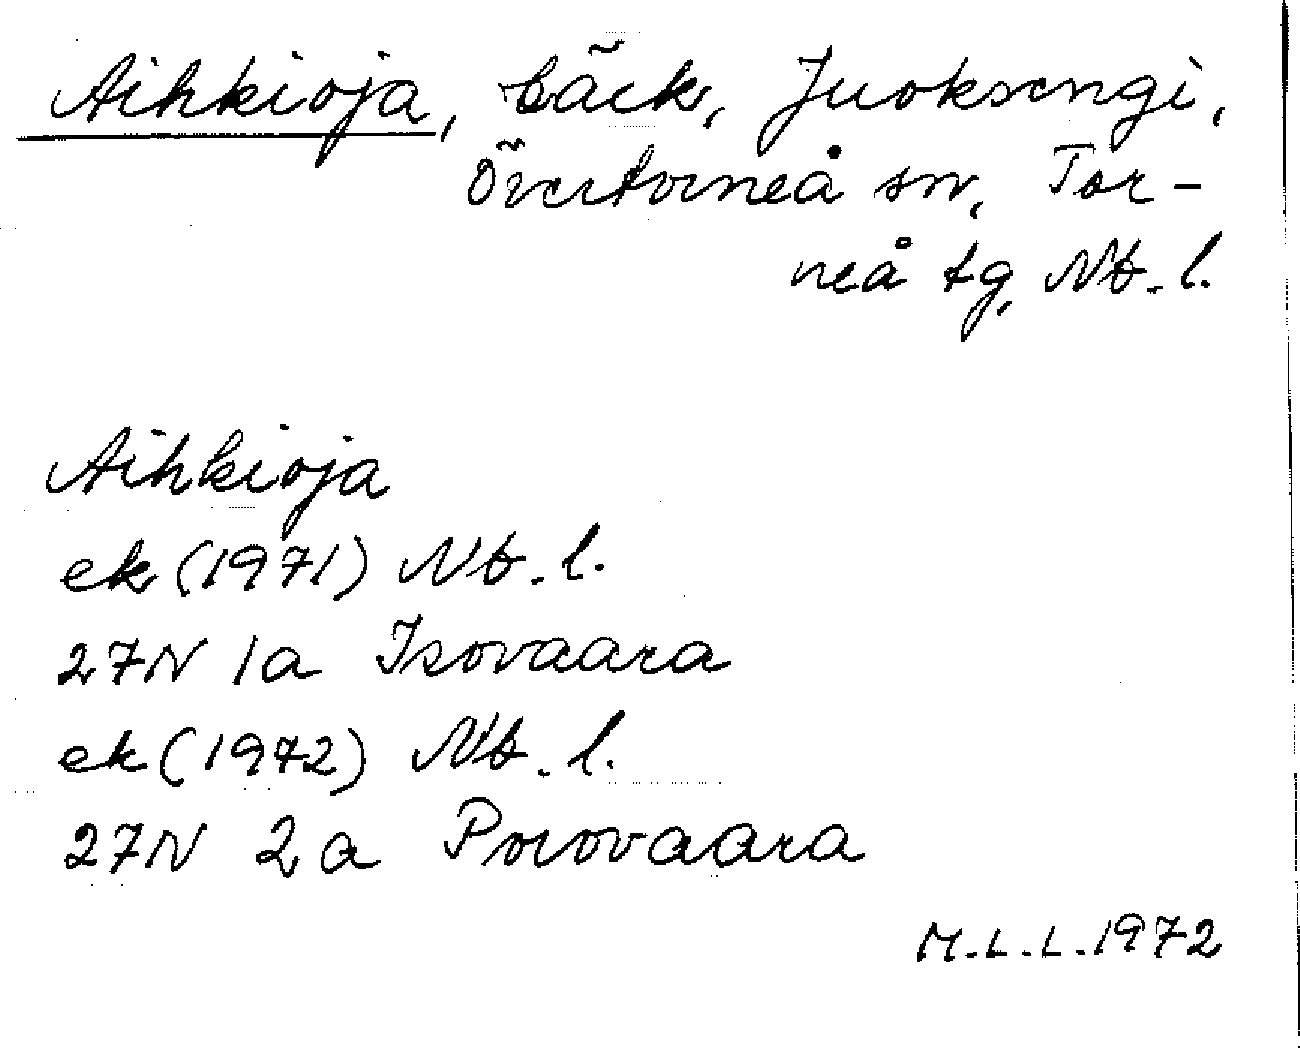 Aihkioja, bäck, Juoksengi,
Övertorneå sn, Tor-
neå tg, Nb. l.
Aihkioja
ek (1971) Nb. l.
27N 1a Isovaara
ek (1972) Nb. l.
27N 2a Porovaara
M.L.L. 1972